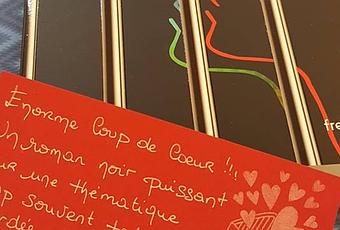 Enorme Coup de Coeur !!!
Un roman noir puissant
sur une thématique
souvent
fre